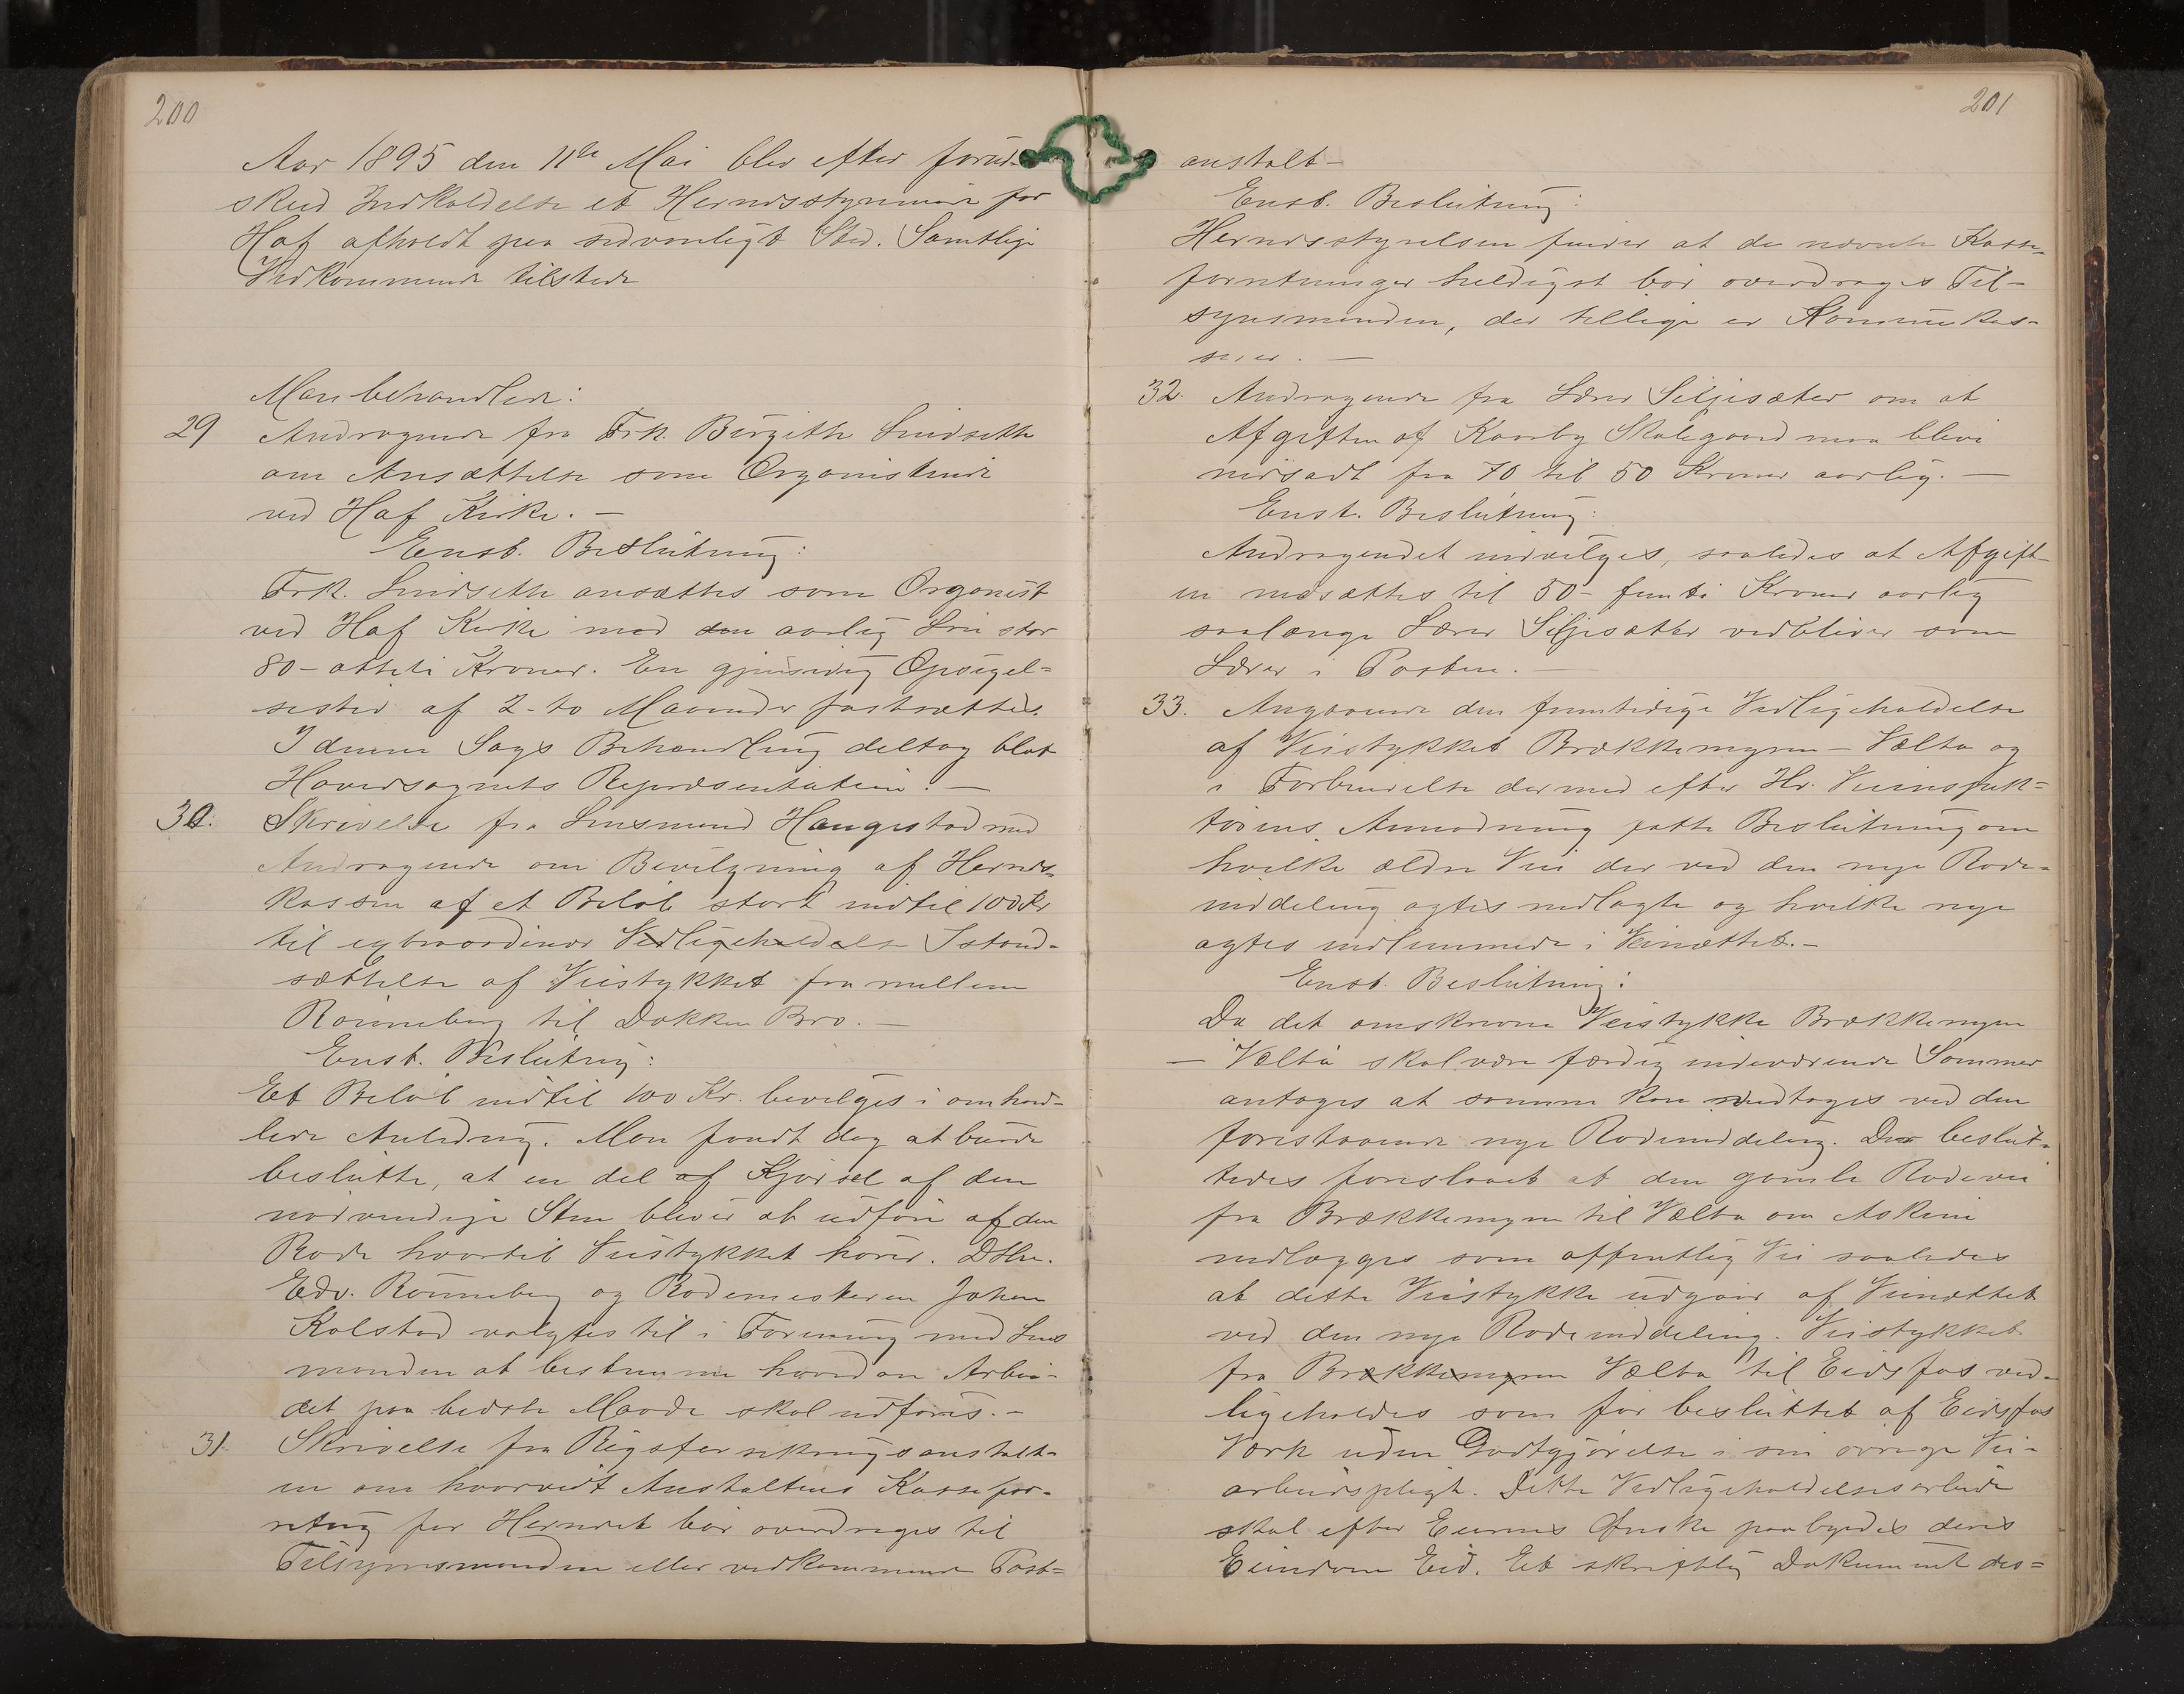 200
Aar 1895 den 11te Mai blev efter forud-
skeed Indkaldelse et Herredsstyremøde for
Hof afholdt paa sedvanligt Sted. Samtlige
Vedkommende tilstede
Man behandlede:
29 Andragende fra Frk. Birgithe Lindseth
om Ansættelse som Organistinde
ved Hof Kirke. —
Enst. Beslutning:
Frk. Lindseth ansættes som Organist
ved Hof Kirke med den aarlig Løn stor
80 - otteti Kroner. En gjensidig Opsigel-
sestid af 2 - to Maaneder fastsættes.
I denne Sags Behandling deltog blot
Hovedsognets Repræsentation. —
30. Skrivelse fra Lensmand Haugestad med
Andragende om Bevilgning af Herreds-
kassen af et Beløb stort indtil 100 Kr
til extraordinær Vedligeholdelse Istand-
sættelse af Veistykket fra mellem
Rønneberg til Dokken Bro. —
Enst. Beslutning:
Et Beløb indtil 100 Kr. bevilges i omhand-
lede Anledning. Man fandt dog at burde
beslutte, at en del af Kjørsel af den
nødvendige Sten bliver at udføre af den
Rode hvortil Veistykket hører. DHr.
Edv. Rønneberg og Rodemesteren Johan
Kolstad valgtes til i Forening med Lens
manden at bestemme hvordan Arbei-
det paa bedste Maade skal udføres. —
31. Skrivelse fra Rigsforsikringsanstalt-
en om hvorvidt Anstaltens Kassefor-
retng for Herredet bør overdrages til
Tilsynsmanden eller vedkommende Post-
201
anstalt —
Enst. Beslutning:
Herredsstyrelsen finder at de nævnte Kasse-
forretninger heldigst bør overdrages Til-
synsmanden, der tillige er Kommunekas-
serer. —
32. Andragende fra Lærer Seljesæter om at
Afgiften af Kaarby Skolegaard maa blive
nedsadt fra 70 til 50 Kroner aarlig. —
Enst. Beslutning:
Andragendet indvilges, saaledes at Afgift-
en nedsættes til 50 - femti Kroner aarlig
saalænge Lærer Seljesæter vedbliver som
Lærer i Posten. —
33. Angaaende den fremtidige Vedligeholdelse
af Veistykket Brækkemyren - Vælta og
i Forbindelse dermed efter Hr. Veiinspek-
tørens Anmodning fatte Beslutning om
hvilke ældre Vei der ved den nye Rode-
inddeling agtes nedlagte og hvilke nye
agtes indlemmede i Veinættet. —
Enst. Beslutning:
Da det omskrevne Veistykke Brækkemyren
— Vælta skal være færdig indeværende Sommer
antages at samme kan medtages ved den
forestaaende nye Rodeinddeling. Der beslut-
tedes foreslaaet at den gamle Rodevei
fra Brækkemyren til Vælta om Askim
nedlægges som offentlig Vei saaledes
at dette Veistykke udgaar af Veinættet
ved den nye Rodeinddeling. Veistykket
fra Brækkemyren Vælta til Eidsfos ved-
ligeholdes som før besluttet af Eidsfos
Værk uden Godtgjørelse i sin øvrige Vei-
arbeidspligt. Dette Vedligeholdelsesarbeide
skal efter Eiernes Ønske paabyrdes deres
Eiendom Eid. Et skriftlig Dokument des-